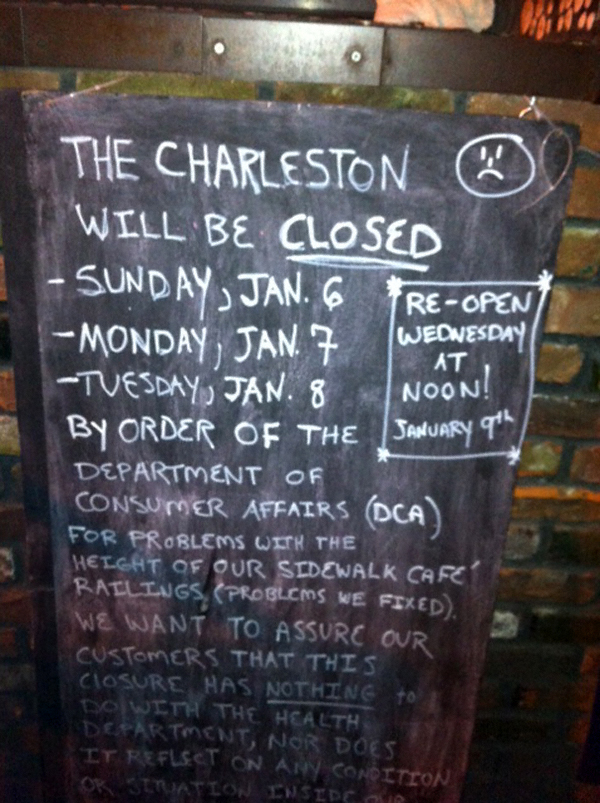 THE CHARLESTON
WILL BE CLOSED
- SUNDAY, JAN. 6
- MONDAY, JAN. 7
- TUESDAY, JAN. 8
RE-OPEN
WEDNESDAY
AT
NOON!
JANUARY 9th
BY ORDER OF THE
DEPARTMENT OF
CONSUMER AFFAIRS (DCA)
FOR PROBLEMS WITH THE
HEIGHT OF OUR SIDEWALK CAFE'
RAILINGS (PROBLEMS WE FIXED).
WE WANT TO ASSURE OUR
CUSTOMERS THAT THIS
CLOSURE HAS NOTHING to
DO WITH THE HEALTH
DEPARTMENT, NOR DOES
IT REFLECT ON ANY CONDITION
OR SITUATION INSIDE OUR